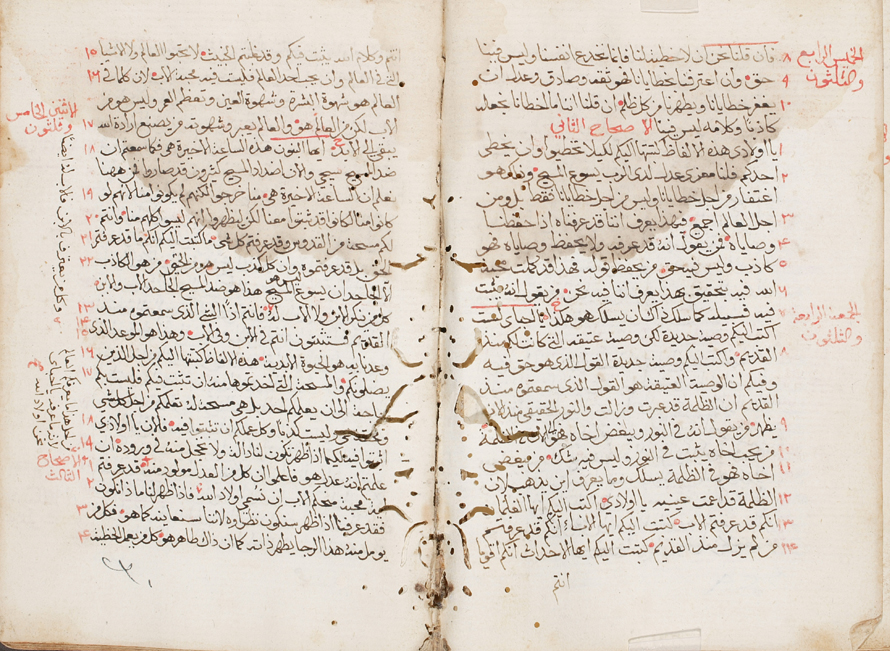 فان قلنا نحن ان لا خطية لنا فانما نخدع انفسنا وليس فينا
حق وان اعترفنا بخطايانا فهو ثقة وصادق وعدل ان
يغفر خطايانا ويطهرنا من كل ظلم ان قلنا اننا ما اخطانا نجعله
كاذبا وكلامه ليس فينا الاصحاح الثاني
يا اولادي هذه الالفاظ كتبتها اليكم لكيلا تخطيوا وان يخطى
احدكم فلنا معزى عدل لدى الرب يسوع المسيح وذلك هو
اغتفار من اجل خطايانا وليس من اجل خطايانا فقط بل ومن
اجل العالم اجمع فبهذا نعرف اننا قد عرفناه اذا حفظنا
وصاياه من يقول انه قد عرفه ولا يحفظ وصاياه فهو
كاذب وليس فيه حق من يحفظ قوله فهذا قد كملت محبة
الله فيه بتحقيق بهذا نعرف اننا فيه نحن من يقول انه ثابت
فيه فسبيله كما سلك ذاك ان يسلك هو هكذا يا احباي لست
اكتب اليكم وصية جديدة لكن وصية عتيقة التي كانت لكم منذ
القديم واكتب اليكم وصية جديدة القول الذي هو حق فيه
وفيكم ان الوصية العتيقة هو القول الذي سمعتموه منذ
القديم ان الظلمة قد عبرت وزالت والنور الحقيقي منذ الان
يظهر من يقول انه في النور ويبغض اخاه فهو في الظلمة
من يحب اخاه يثبت في النور وليس فيه شك من يبغض
اخاه فهو في الظلمة يسلك وما يعرف اين يذهب لان
الظلمة قد اعمت عينيه يا اولادي اكتب اليكم ايها الغلمان
انكم قد عرفتم الاب كتبت اليكم ايها الاباء انكم قد عرفتم
من لم يزل منذ القديم كتبت اليكم ايها الاحداث انكم اقويا
انتم
الخميس الرابع
والثلثون
الجمعة الرابعة
والثلثون
انتم وكلام الله يثبت فيكم وقد غلبتم الخبيث لا تحبوا العالم ولا الاشيا
التي في العالم وان يحب احد العالم فليست فيه محبة الاب لان كلما في
العالم هو شهوة البشرة وشهوة العين وتعظم العمر وليس هو من
الاب لكن من العالم هو والعالم يعبر وشهوته من يصنع ارادة الله
يبقى الى الابد ايها البنون هذه الساعة الاخيرة هي فكما سمعتم ان
ضد المسيح يجي والان اضداد المسيح كثيرون قد صاروا لكن من ههنا
نعلم ان الساعة الاخيرة هي منا خرجوا لكنهم لم يكونوا منا لانهم لو
كانوا منا لكانوا قد ثبتوا معنا لكن ليظهروا انهم ليسوا كلهم منا وانتم
لكم مسحة من القدوس وقد عرفتم كل شي ما كتبت اليكم انكم ما قد عرفتم
الحق بل قد عرفتموه وان كل كذب ليس هو من الحق من هو الكاذب
الا الجاحد ان يسوع المسيح هذا هو ضد المسيح الجاحد الاب والابن
كل من ينكر الابن ولا الاب له فانتم اذا الشي الذي سمعتموه منذ
القديم فستثبتون انتم في الابن وفي الاب وهذا هو الوعد الذي
وعدنا به هو الحيوة الابدية هذه الالفاظ كتبتها اليكم من اجل الذين
يضلونكم والمسحة التي اخذتموها منه ان تثبت فيكم فليست بكم
حاجة الى ان يعلمكم احد بل هي مسحة له تعلمكم من اجل كل شي
وليست كذبا وكما علمتكم ان تثبتوا فيه فالان يا اولادي
اثبتوا فيه لكيما اذا ظهر تكون لنا دالة ولا نخجل منه في وروده ان
علمتم انه عدل هو فاعلموا ان كل من يفعل العدل مولود منه قد عرفتم
اية محبة منحكم الاب ان نسمى اولاد الله فاذا ظهر لنا ماذا نكون
فقد عرفنا اذا ظهر سنكون نظراه لاننا سنعاينه كما هو فكل من
يومل منه هذا الرجا يطهر ذاته كما ان ذاك طاهر هو كل من يعمل الخطية
الاثنين الخامس
وثلثون
الاصحاح
الثالث